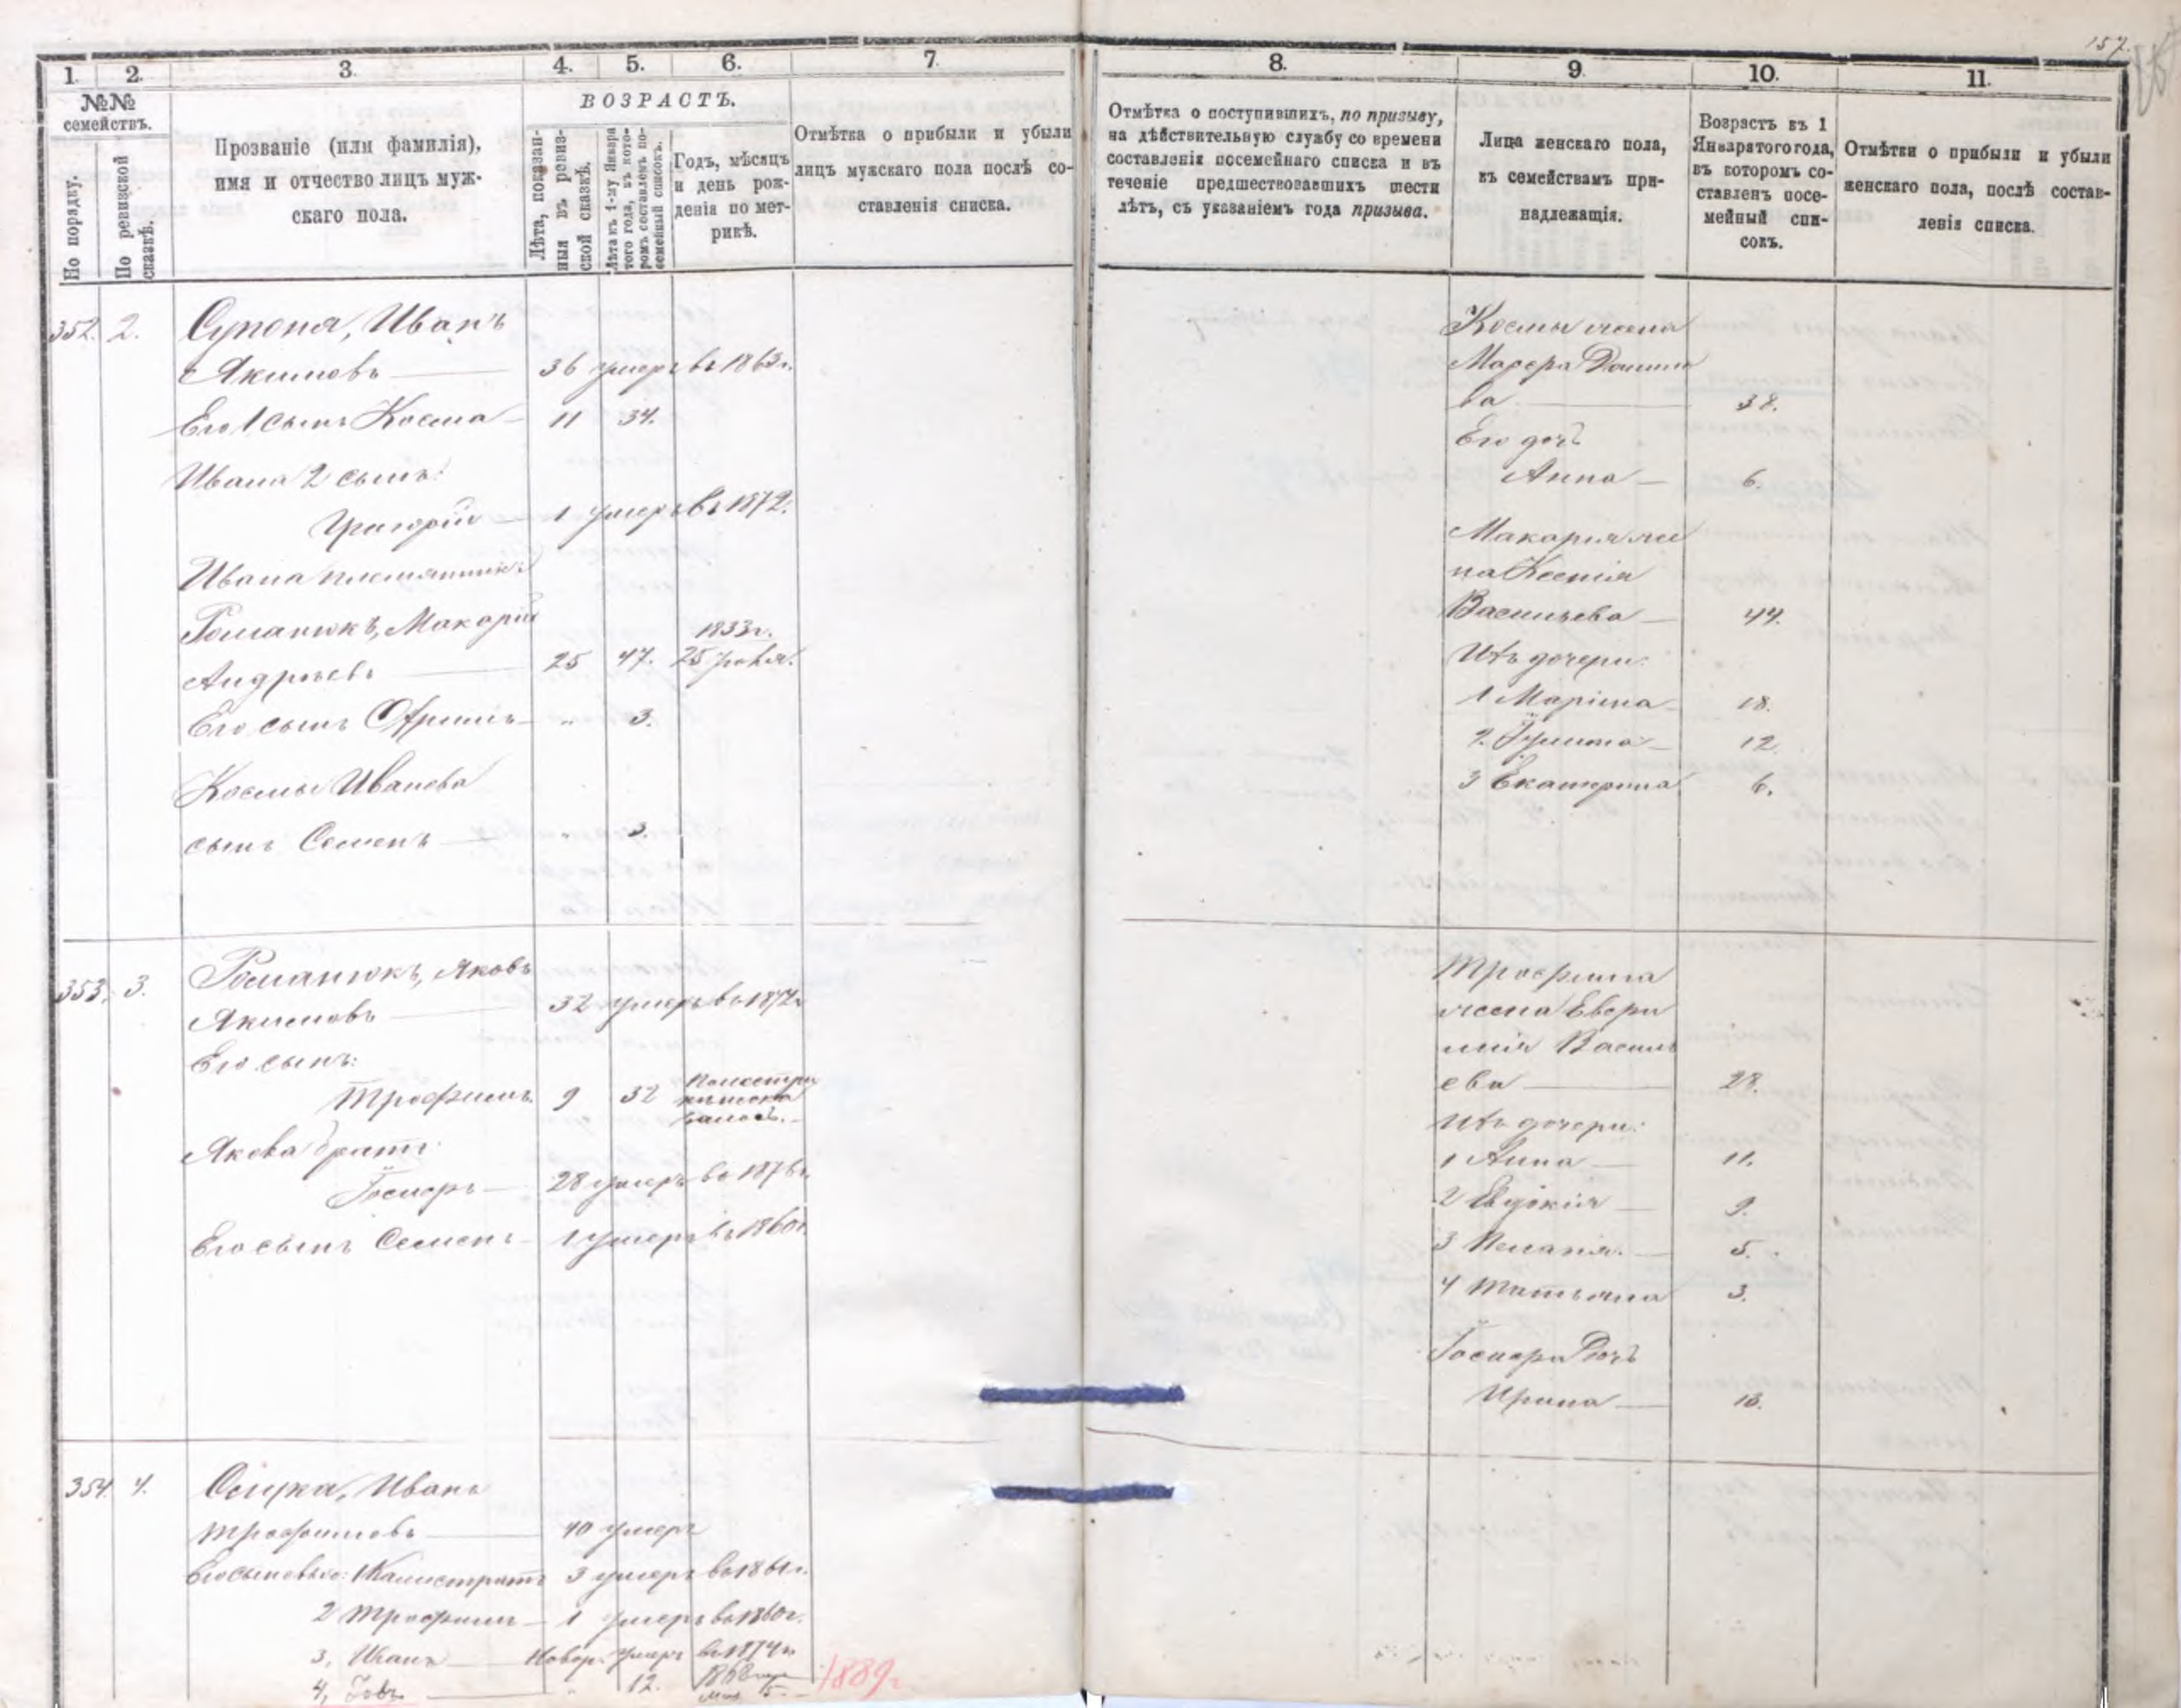 157.
1. 2. 3. 4. 5. 6. 7.
№№ семействъ.
По порядку.
По ревизской сказкѣ.
Прозваніе (или фамилія),
имя и отчество лицъ муж-
скаго пола.
ВОЗРАСТЪ.
Лѣта, показан-
ныя въ ревиз-
ской сказкѣ.
Лѣта къ 1-му Января
того года, въ кото-
ромъ составленъ по-
семейный списокъ.
Годъ, мѣсяцъ
и день рож-
денія по мет-
рикѣ.
Отмѣтка о прибыли и убыли
лицъ мужскаго пола послѣ со-
ставленія списка.
352. 2. Супоня, Иванъ
Якимовъ 36 умеръ въ 1863г.
Его 1 сынъ Косма 11 34.
Ивана 2 сынъ:
Григорій 1 умеръ въ 1872.
Ивана племянникъ
Романюкъ, Макарій
1833г.
Андреевъ 25 47. 25
Его сынъ 3.
Космы Иванова
сынъ Семенъ " 3.
353. 3. Романюкъ, Яковъ
Якимовъ 32 умеръ въ 1872
Его сынъ:
Трофимъ. 9 32
Якова братъ
Іосифъ 28 умеръ въ 1876г.
Его сынъ Семенъ 1 умеръ въ 1860г.
354 4. Иванъ
Трофимовъ 40 умеръ
Его сыновья: 1 Калистратъ 3 умеръ въ 1861г.
2 Трофимъ 1 умеръ въ 1860г.
3, Иванъ Новор. умеръ въ 1874г.
4, Іовъ " 12. 1868
1889г.
8. 9. 10. 11.
Отмѣтка о поступившихъ, по призыву,
на дѣйствительную службу со времени
составленія посемейнаго списка и въ
теченіе предшествовавшихъ шести
лѣтъ, съ указаніемъ года призыва.
Лица женскаго пола,
къ семействамъ при-
надлежащія.
Возрастъ въ 1
Января того года,
въ которомъ со-
ставленъ посе-
мейный спи-
сокъ.
Отмѣтки о прибыли и убыли
женскаго пола, послѣ состав-
ленія списка.
Космы жена
Марфа
ва 38.
Его дочь
Анна 6.
Макарія же
на Ксенія
Васильева 44.
Ихъ дочери:
1 Маріна 18.
2. 12
3 Екатерина 6.
Трофима
жена Евфи
мія Василь
ева 28.
Ихъ дочери:
1 Анна 11.
2 Евдокія 9.
3 5.
4 Татьяна 3.
Іосифа Дочь
Ирина 13.